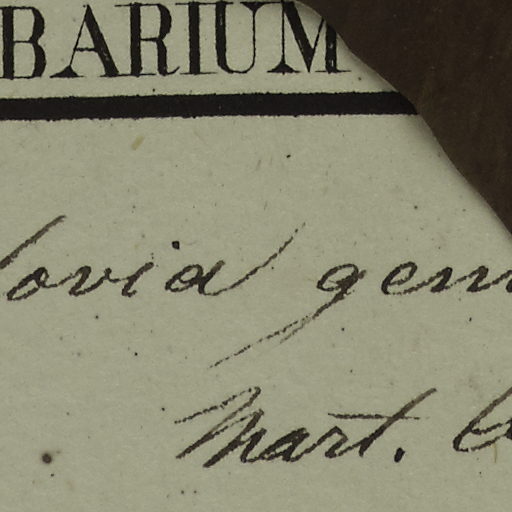 BARIUM
ovia gen
Mart.